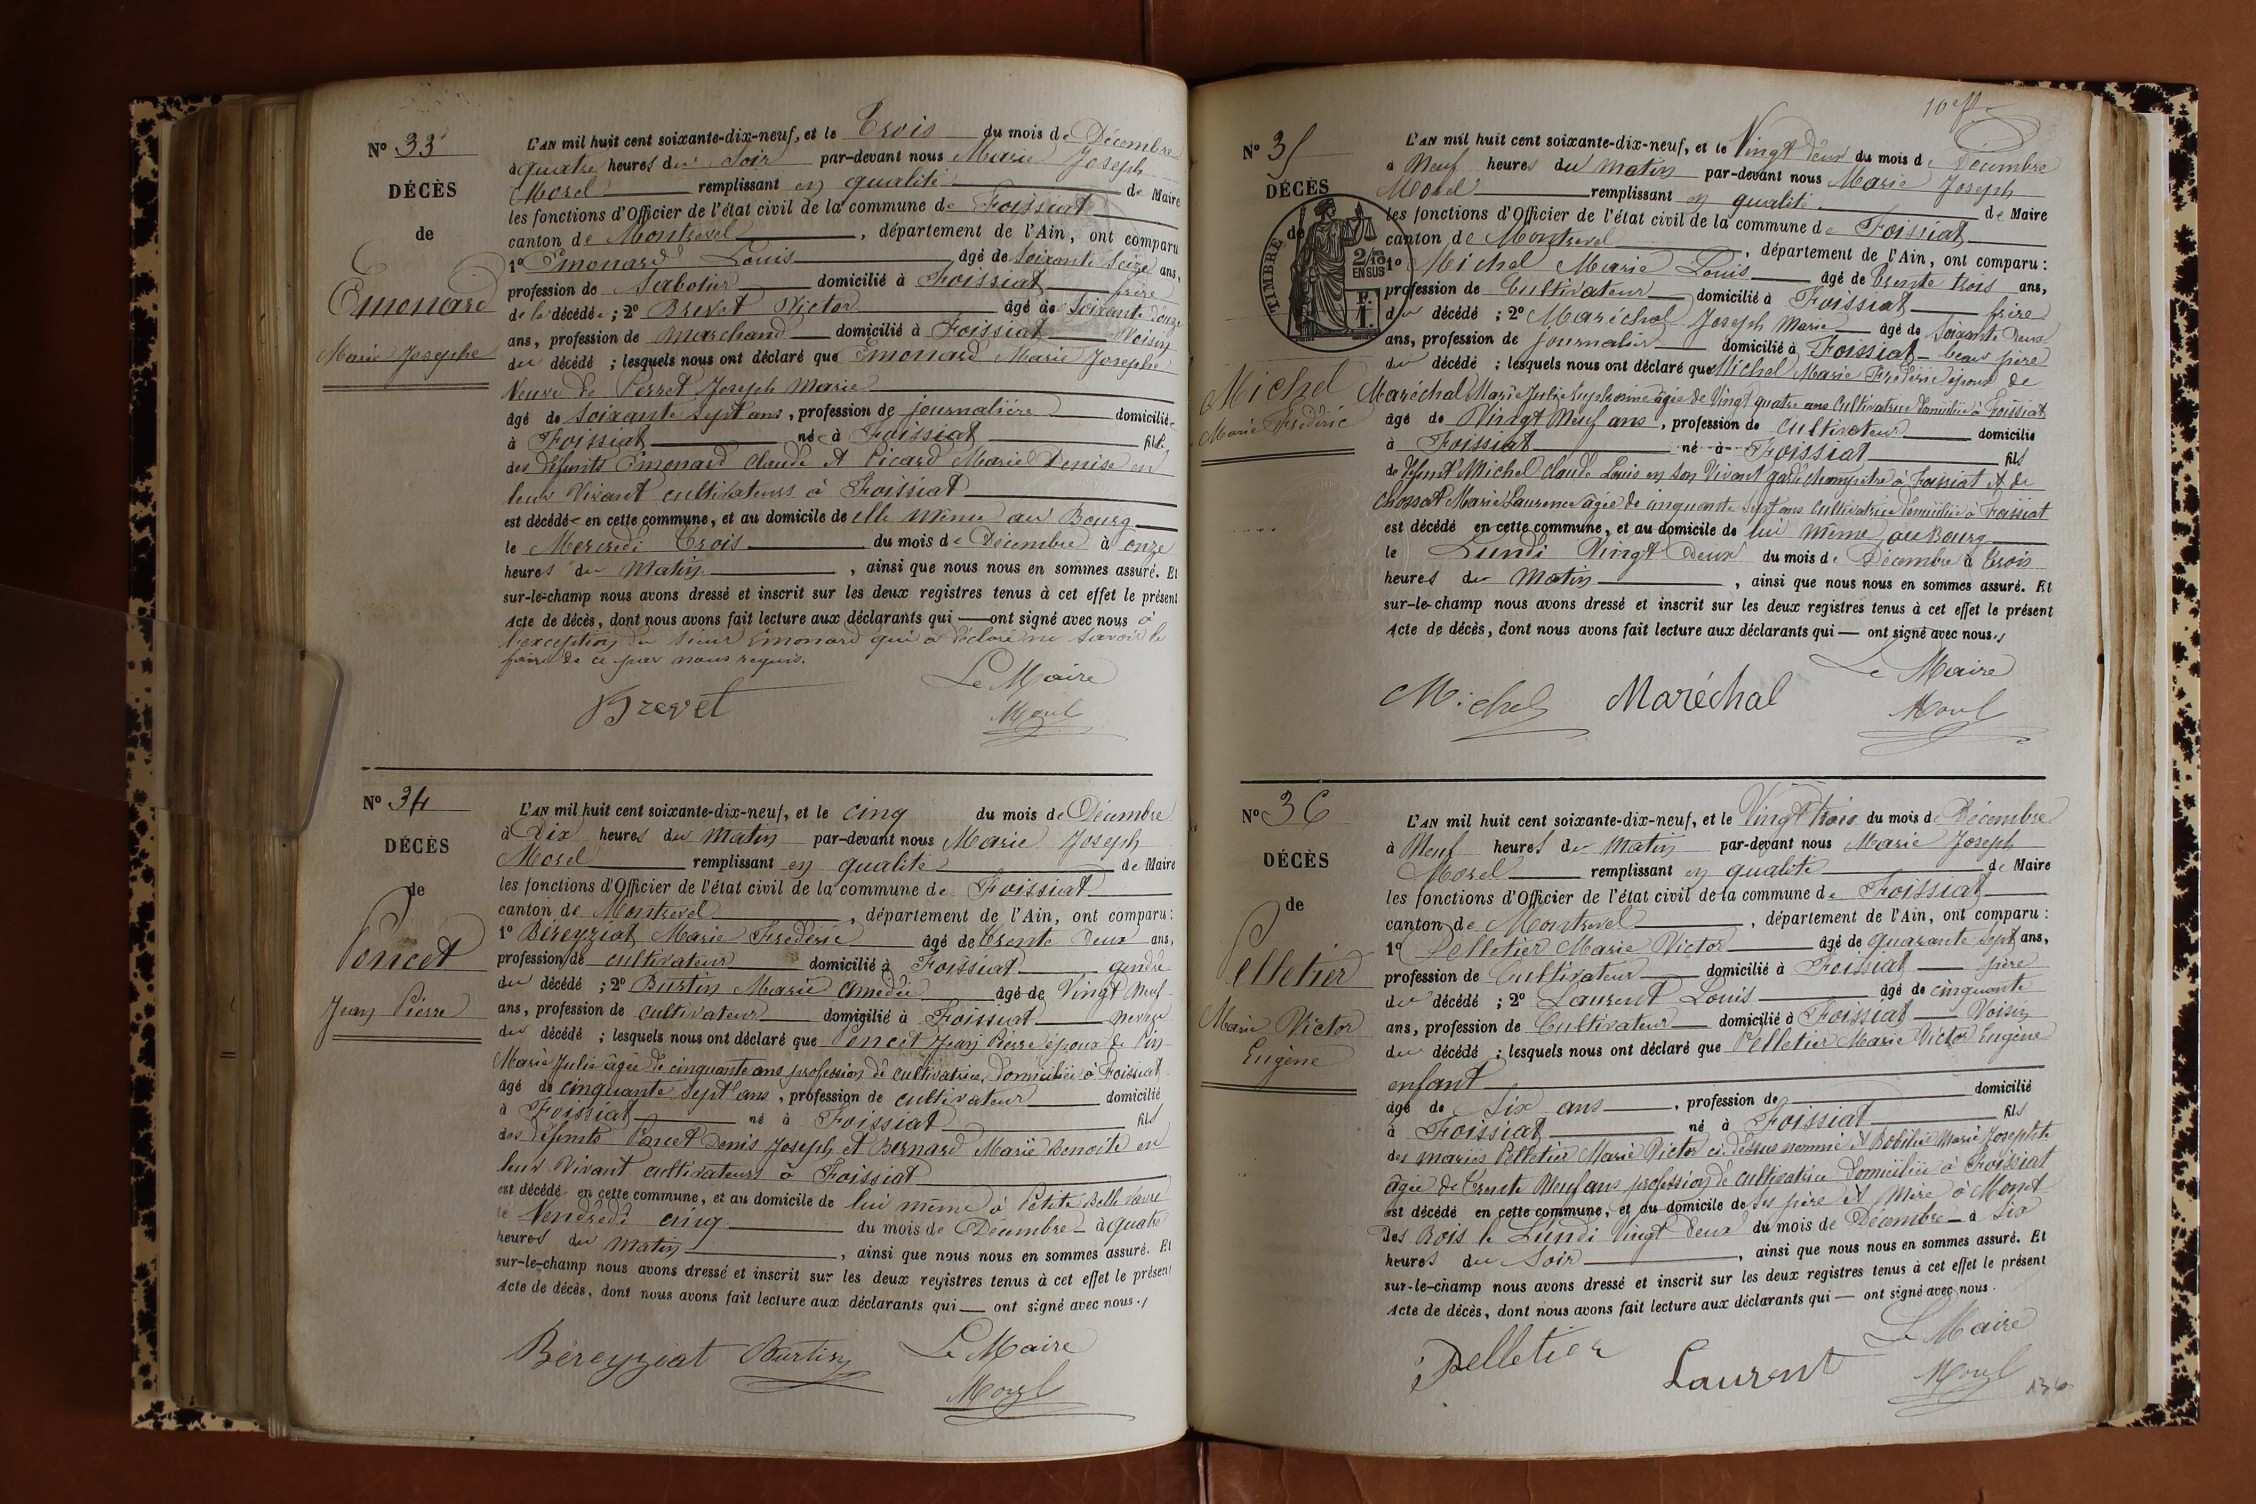 N° 33
DÉCÈS
de
Emonard
Marie Josephe
L'AN mil huit cent soixante-dix-neuf, et le Trois du mois de Décembre
à quatre heures du Soir par-devant nous Marie Joseph
Morel remplissant en qualité de Maire
les fonctions d'Officier de l'état civil de la commune de Foissiat
canton de Montrevel, département de l'Ain, ont comparu
1° Emonard Louis âgé de soixante seize ans,
profession de Sabotier domicilié à Foissiat frère
de la décédée; 2° Brevet Victor âgé de soixante onze
ans, profession de marchand domicilié à Foissiat Voisin
du décédé; lesquels nous ont déclaré que Emonard Marie Josephe
Veuve de Perret Joseph Marie
âgé de soixante sept ans, profession de journalière domiciliée
à Foissiat née à Foissiat fille
des défunts Emonard Claude et Picard Marie Denise en
leur Vivant cultivateurs à Foissiat
est décédée en cette commune, et au domicile de elle même au Bourg
le Mercredi Trois du mois de Décembre à onze
heures du Matin, ainsi que nous nous en sommes assuré. Et
sur-le-champ nous avons dressé et inscrit sur les deux registres tenus à cet effet le présent
Acte de décès, dont nous avons fait lecture aux déclarants qui ont signé avec nous à
l'exception du sieur Emonard qui a déclaré ne savoir le
faire de ce par nous requis.
Brevet
Le Maire
Morel
N° 34
DÉCÈS
de
Poncet
Jean Pierre
L'AN mil huit cent soixante-dix-neuf, et le cinq du mois de Décembre
à Dix heures du Matin par-devant nous Marie Joseph
Morel remplissant en qualité de Maire
les fonctions d'Officier de l'état civil de la commune de Foissiat
canton de Montrevel, département de l'Ain, ont comparu:
1° Béreyziat Marie Frédéric âgé de Trente Deux ans,
profession de cultivateur domicilié à Foissiat gendre
du décédé; 2° Burtin Marie Amédée âgé de Vingt Neuf
ans, profession de cultivateur domicilié à Foissiat neveu
du décédé; lesquels nous ont déclaré que Poncet Jean Pierre époux de
Marie Julie âgée de cinquante ans profession de cultivatrice domiciliée à Foissiat
âgé de cinquante Sept ans, profession de cultivateur domicilié
à Foissiat né à Foissiat fils
des défunts Poncet Denis Joseph et Bernard Marie Benoite en
leur Vivant cultivateurs à Foissiat
est décédé en cette commune, et au domicile de lui même à Petite Belle
le Vendredi cinq du mois de Décembre à quatre
heures du Matin, ainsi que nous nous en sommes assuré. Et
sur-le-champ nous avons dressé et inscrit sur les deux registres tenus à cet effet le présent
Acte de décès, dont nous avons fait lecture aux déclarants qui ont signé avec nous.
Béreyziat Burtin
Le Maire
Morel
N° 35
DÉCÈS
de
TIMBRE
2/10
EN SUS
Michel
Marie Frédéric
L'AN mil huit cent soixante-dix-neuf, et le Vingt Deux du mois de Décembre
à Neuf heures du Matin par-devant nous Marie Joseph
Morel remplissant en qualité de Maire
les fonctions d'Officier de l'état civil de la commune de Foissiat
canton de Montrevel, département de l'Ain, ont comparu:
1° Michel Marie Louis âgé de Trente trois ans,
profession de Cultivateur domicilié à Foissiat frère
du décédé; 2° Maréchal Joseph Marie âgé de Soixante Deux
ans, profession de journalier domicilié à Foissiat beau père
du décédé; lesquels nous ont déclaré que Michel Marie Frédéric époux de
Maréchal Marie Julie Euphrosine âgée de Vingt quatre ans Cultivatrice domiciliée à Foissiat
âgé de Vingt Neuf ans, profession de Cultivateur domicilié
à Foissiat né à Foissiat fils
de défunt Michel Claude Louis en son Vivant garde champêtre à Foissiat et de
Chossat Marie Laurence âgée de cinquante sept ans Cultivatrice domiciliée à Foissiat
est décédé en cette commune, et au domicile de lui même au Bourg
le Lundi Vingt Deux du mois de Décembre à Trois
heures du Matin, ainsi que nous nous en sommes assuré. Et
sur-le-champ nous avons dressé et inscrit sur les deux registres tenus à cet effet le présent
Acte de décès, dont nous avons fait lecture aux déclarants qui ont signé avec nous.
Michel Maréchal
Le Maire
Morel
N° 36
DÉCÈS
de
Pelletier
Marie Victor
Eugène
L'AN mil huit cent soixante-dix-neuf, et le Vingt trois du mois de Décembre
à Neuf heures du Matin par-devant nous Marie Joseph
Morel remplissant en qualité de Maire
les fonctions d'Officier de l'état civil de la commune de Foissiat
canton de Montrevel, département de l'Ain, ont comparu:
1° Pelletier Marie Victor âgé de quarante sept ans,
profession de Cultivateur domicilié à Foissiat père
du décédé; 2° Laurent Louis âgé de cinquante
ans, profession de Cultivateur domicilié à Foissiat Voisin
du décédé; lesquels nous ont déclaré que Pelletier Marie Victor Eugène
enfant
âgé de Six ans, profession de domicilié
à Foissiat né à Foissiat fils
des mariés Pelletier Marie Victor ci dessus nommé et Marie Josephte
âgée de Trente Neuf ans profession de cultivatrice domiciliée à Foissiat
est décédé en cette commune, et au domicile de ses père et Mère à Monet
des Bois le Lundi Vingt Deux du mois de Décembre à Six
heures du Soir, ainsi que nous nous en sommes assuré. Et
sur-le-champ nous avons dressé et inscrit sur les deux registres tenus à cet effet le présent
Acte de décès, dont nous avons fait lecture aux déclarants qui ont signé avec nous.
Pelletier
Laurent
Le Maire
Morel